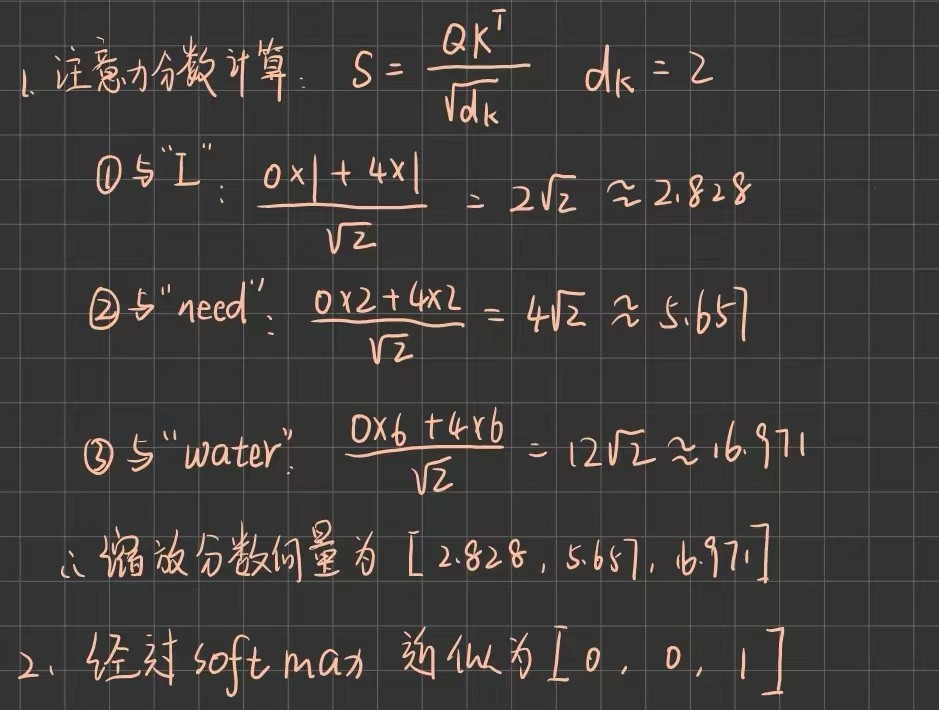 1. 注意力分数计算: S = QK^T / √dk  dk = 2
① 与"I": (0×1 + 4×1) / √2 = 2√2 ≈ 2.828
② 与"need": (0×2+4×2) / √2 = 4√2 ≈ 5.657
③ 与"water": (0×6 + 4×6) / √2 = 12√2 ≈ 16.971
∴ 缩放分数向量为 [2.828, 5.657, 16.971]
2. 经过 softmax 近似为 [0, 0, 1]